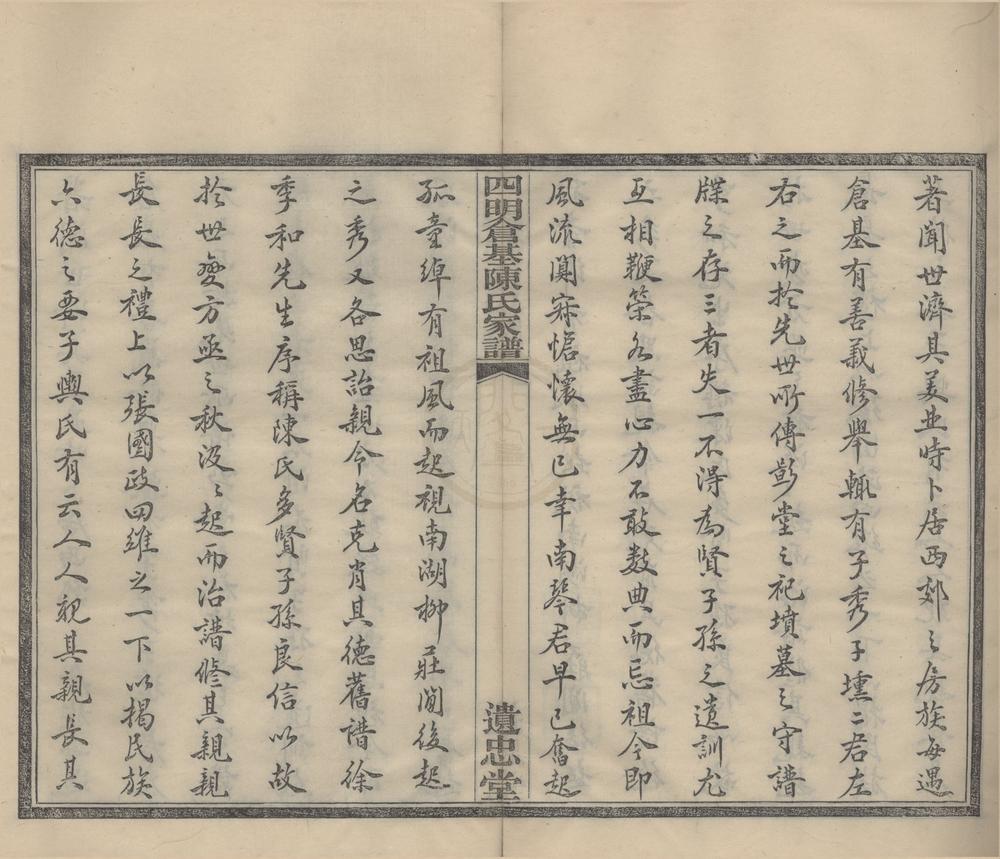 著聞世濟具美並時卜居西郊之房族每遇
倉基有善義修舉輒有子秀子壎二君左
右之而於先世所傳影堂之祀墳墓之守譜
牒之存三者失一不得為賢子孫之遺訓尤
互相鞭策各盡心力不敢數典而忘祖今即
風流闃寂愴懷無已幸南琴君早已奮起
四明倉基陳氏家譜
遺忠堂
孤童綽有祖風而起視南湖柳莊間後起
之秀又各思詒親令名克肖其德舊譜徐
季和先生序稱陳氏多賢子孫良信以故
於世變方亟之秋汲汲起而治譜修其親親
長長之禮上以張國政四維之一下以揭民族
六德之要子輿氏有云人人親其親長其